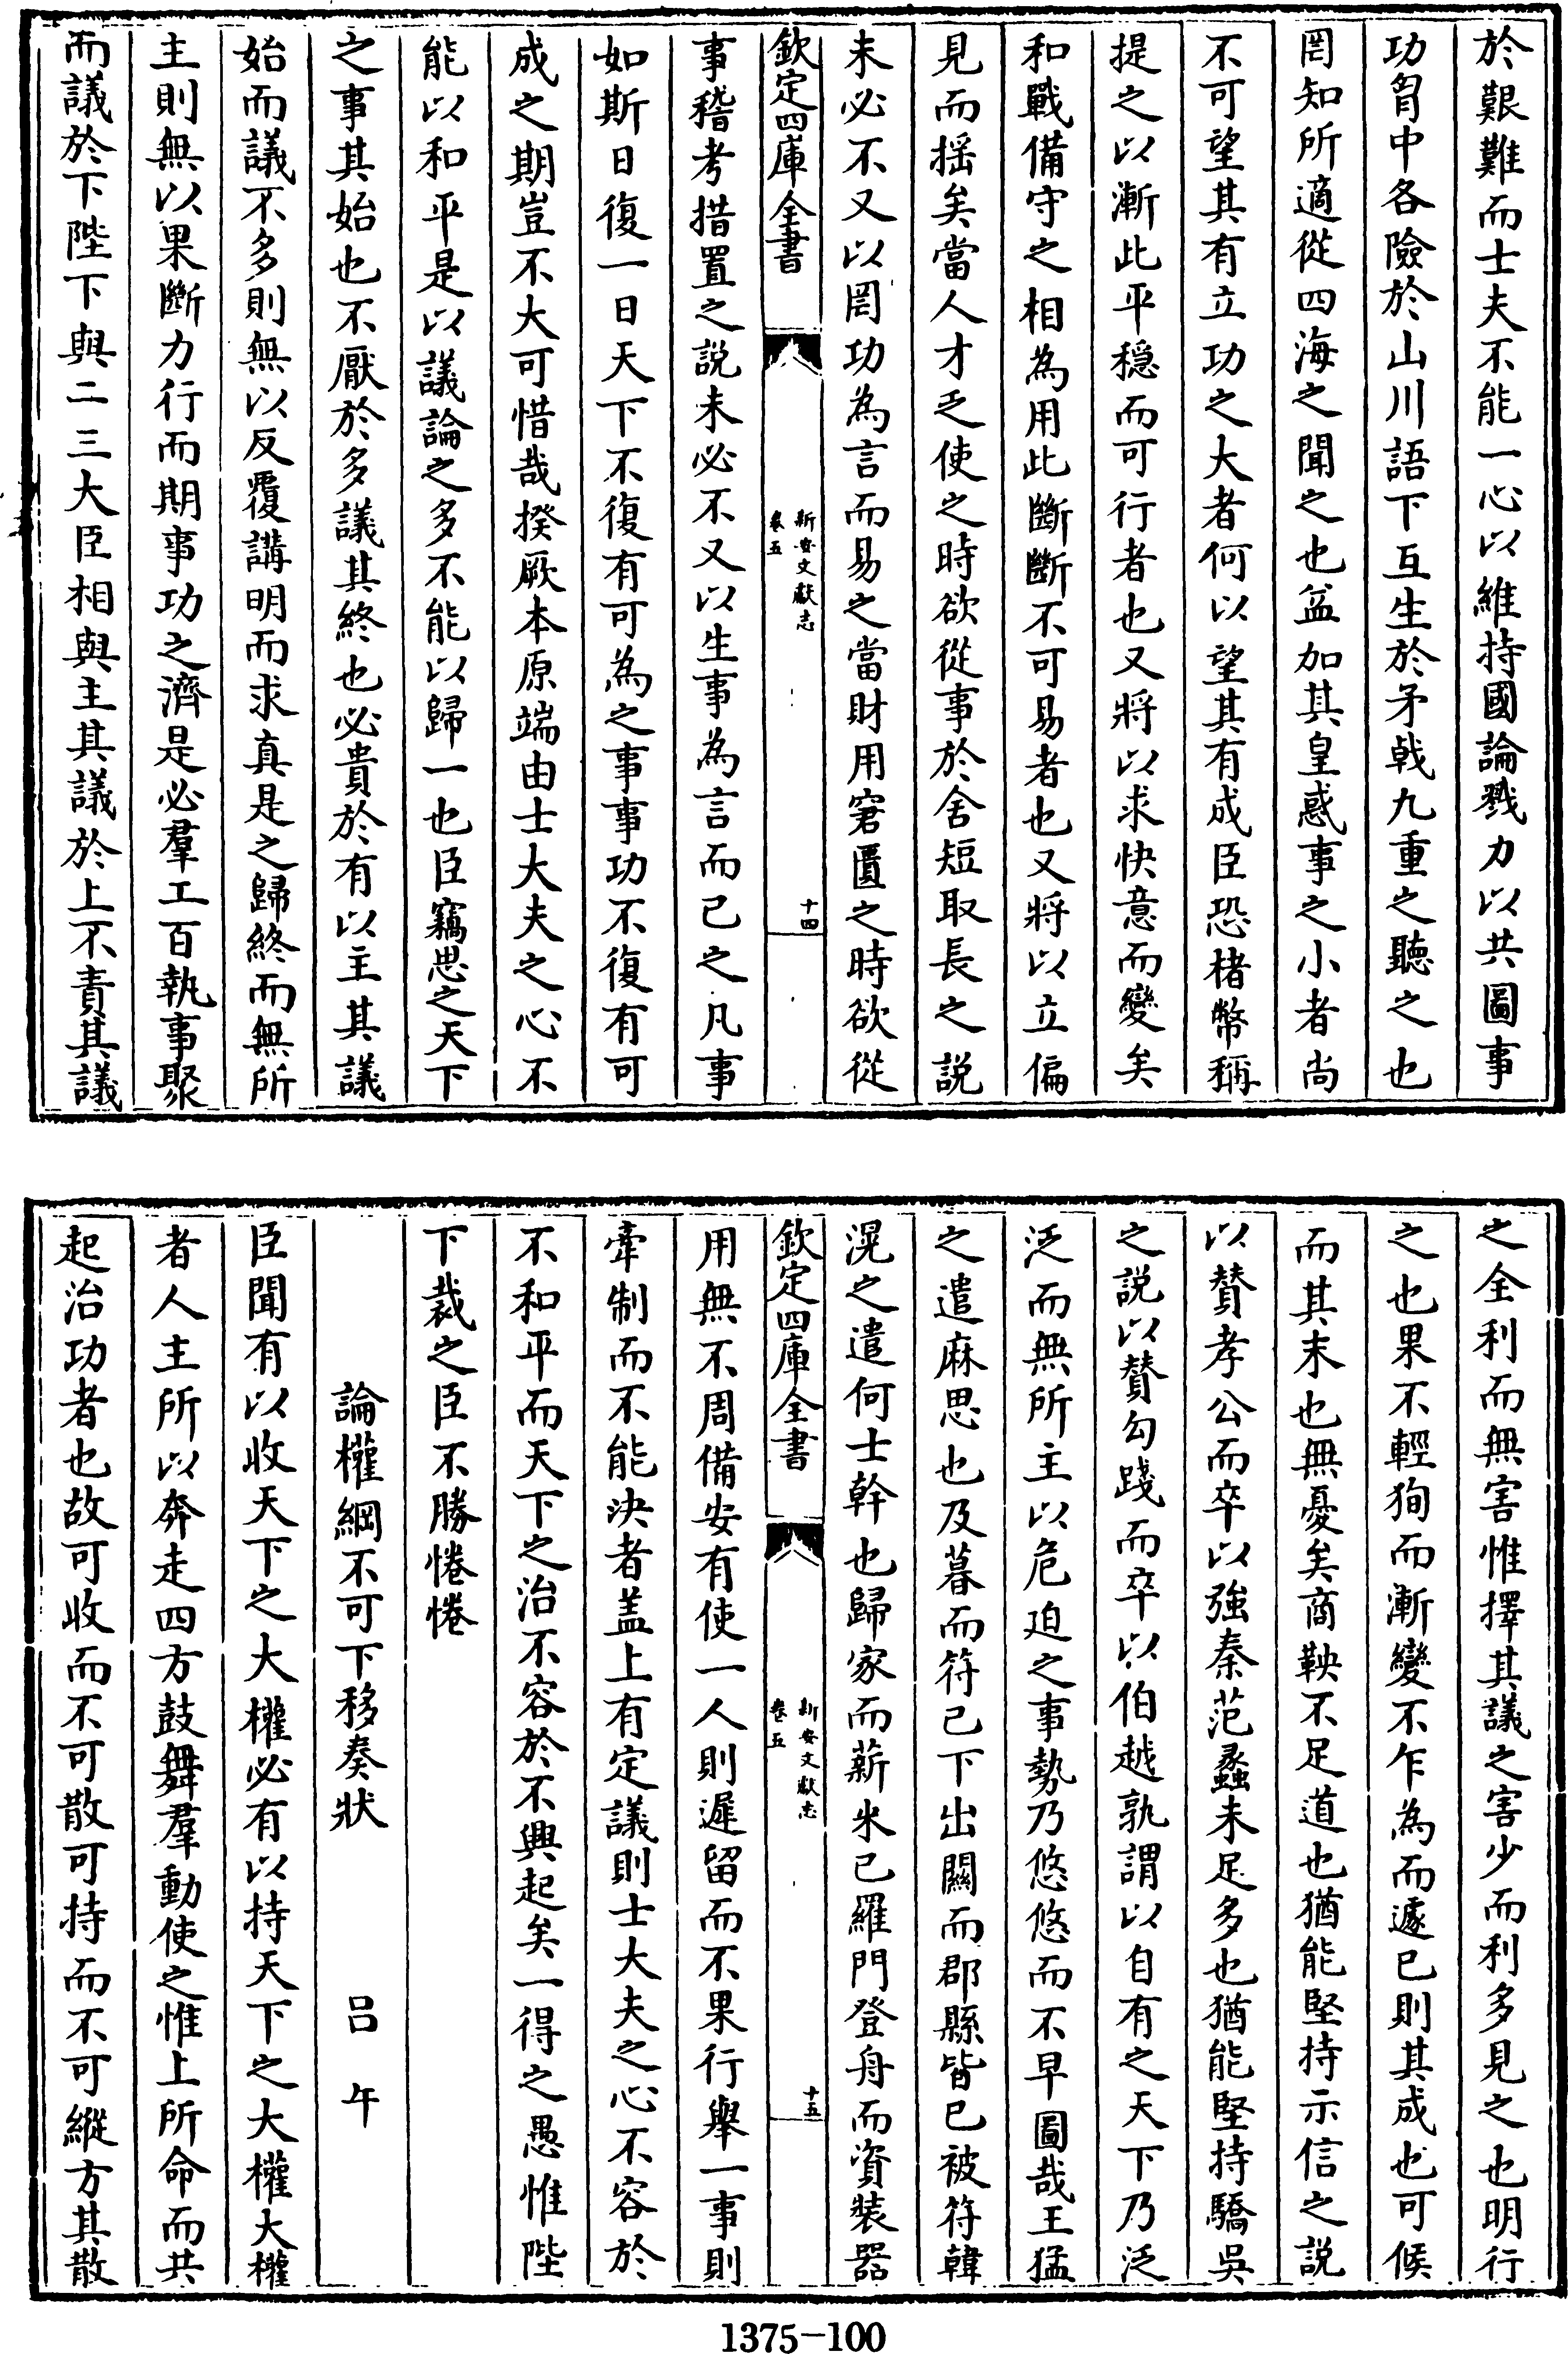 於艱難而士夫不能一心以維持國論戮力以共圖事
功胷中各險於山川語下互生於矛戟九重之聽之也
罔知所適從四海之聞之也益加其皇惑事之小者尚
不可望其有立功之大者何以望其有成臣恐楮幣稱
提之以漸此平穏而可行者也又將以求快意而變矣
和戰備守之相為用此斷斷不可易者也又將以立偏
見而揺矣當人才乏使之時欲從事於舍短取長之説
未必不又以罔功為言而易之當財用窘匱之時欲從
欽定四庫全書
新安文獻志
卷五
十四
事稽考措置之説未必不又以生事為言而已之凡事
如斯日復一日天下不復有可為之事事功不復有可
成之期豈不大可惜哉揆厥本原端由士大夫之心不
能以和平是以議論之多不能以歸一也臣竊思之天下
之事其始也不厭於多議其終也必貴於有以主其議
始而議不多則無以反覆講明而求真是之歸終而無所
主則無以果斷力行而期事功之濟是必羣工百執事聚
而議於下陛下與二三大臣相與主其議於上不責其議
之全利而無害惟擇其議之害少而利多見之也明行
之也果不輕狥而漸變不乍為而遽已則其成也可候
而其末也無憂矣商鞅不足道也猶能堅持示信之説
以賛孝公而卒以強秦范蠡未足多也猶能堅持驕吳
之説以賛勾踐而卒以伯越孰謂以自有之天下乃泛
泛而無所主以危迫之事勢乃悠悠而不早圖哉王猛
之遣麻思也及暮而符已下出關而郡縣皆已被符韓
滉之遣何士幹也歸家而薪米已羅門登舟而資裝器
欽定四庫全書
新安文獻志
卷五
十五
用無不周備安有使一人則遲留而不果行舉一事則
牽制而不能決者盖上有定議則士大夫之心不容於
不和平而天下之治不容於不興起矣一得之愚惟陛
下裁之臣不勝惓惓
論權綱不可下移奏狀　呂午
臣聞有以收天下之大權必有以持天下之大權大權
者人主所以奔走四方鼓舞羣動使之惟上所命而共
起治功者也故可收而不可散可持而不可縱方其散
1375-100